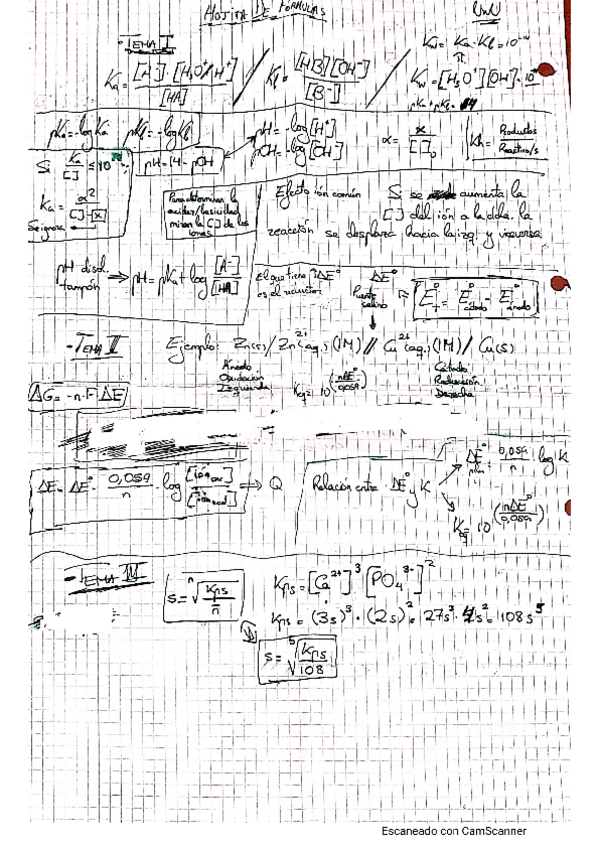 HOJITA DE FÓRMULAS
- TEMA I
Kw = Ka · Kb = 10^-14
Ka = [A^-] · [H3O^+/H^+] / [HA]
Kb = [HB][OH^-] / [B^-]
Kw = [H3O^+][OH^-] = 10^-14
pKa + pKb = 14
pKa = -log Ka pKb = -log Kb
pH = -log[H^+]
pOH = -log[OH^-]
α = x / [ ]0
Kh = Productos / Reactivos
pH = 14 - pOH
Si Ka / [ ] ≤ 10
Ka = α^2 / [ ] - x
Se ignora
Para determinar la
acidez/basicidad
miran la [ ] de los
iones
Efecto ión común
Si se aumenta la
[ ] del ión a la dcha. la
reacción se desplaza hacia la izq y viceversa
pH disol.
tampón
⟹ pH = pKa + log [A^-] / [HA]
El que tiene ↑ΔE°
es el reductor
ΔE°
Puente
salino
E°T = E°cátodo - E°ánodo
- TEMA II
Ejemplo: Zn(s) / Zn^2+(aq.)(1M) // Cu^2+(aq.)(1M) / Cu(s)
Ánodo
Oxidación
Izquierda
Keq = 10^(nΔE°/0,059)
Cátodo
Reducción
Derecha
ΔG = -n·F·ΔE
ΔE = ΔE° - 0,059 / n · log [ión] / [ión] ⟹ Q
Relación entre ΔE° y K
ΔE° = 0,059 / n · log K
Keq = 10^(nΔE°/0,059)
- TEMA III
s = n√(Kps / n)
Kps = [Ca^2+]^3 [PO4^3-]^2
Kps = (3s)^3 · (2s)^2 = 27s^3 · 4s^2 = 108s^5
s = 5√(Kps / 108)
Escaneado con CamScanner